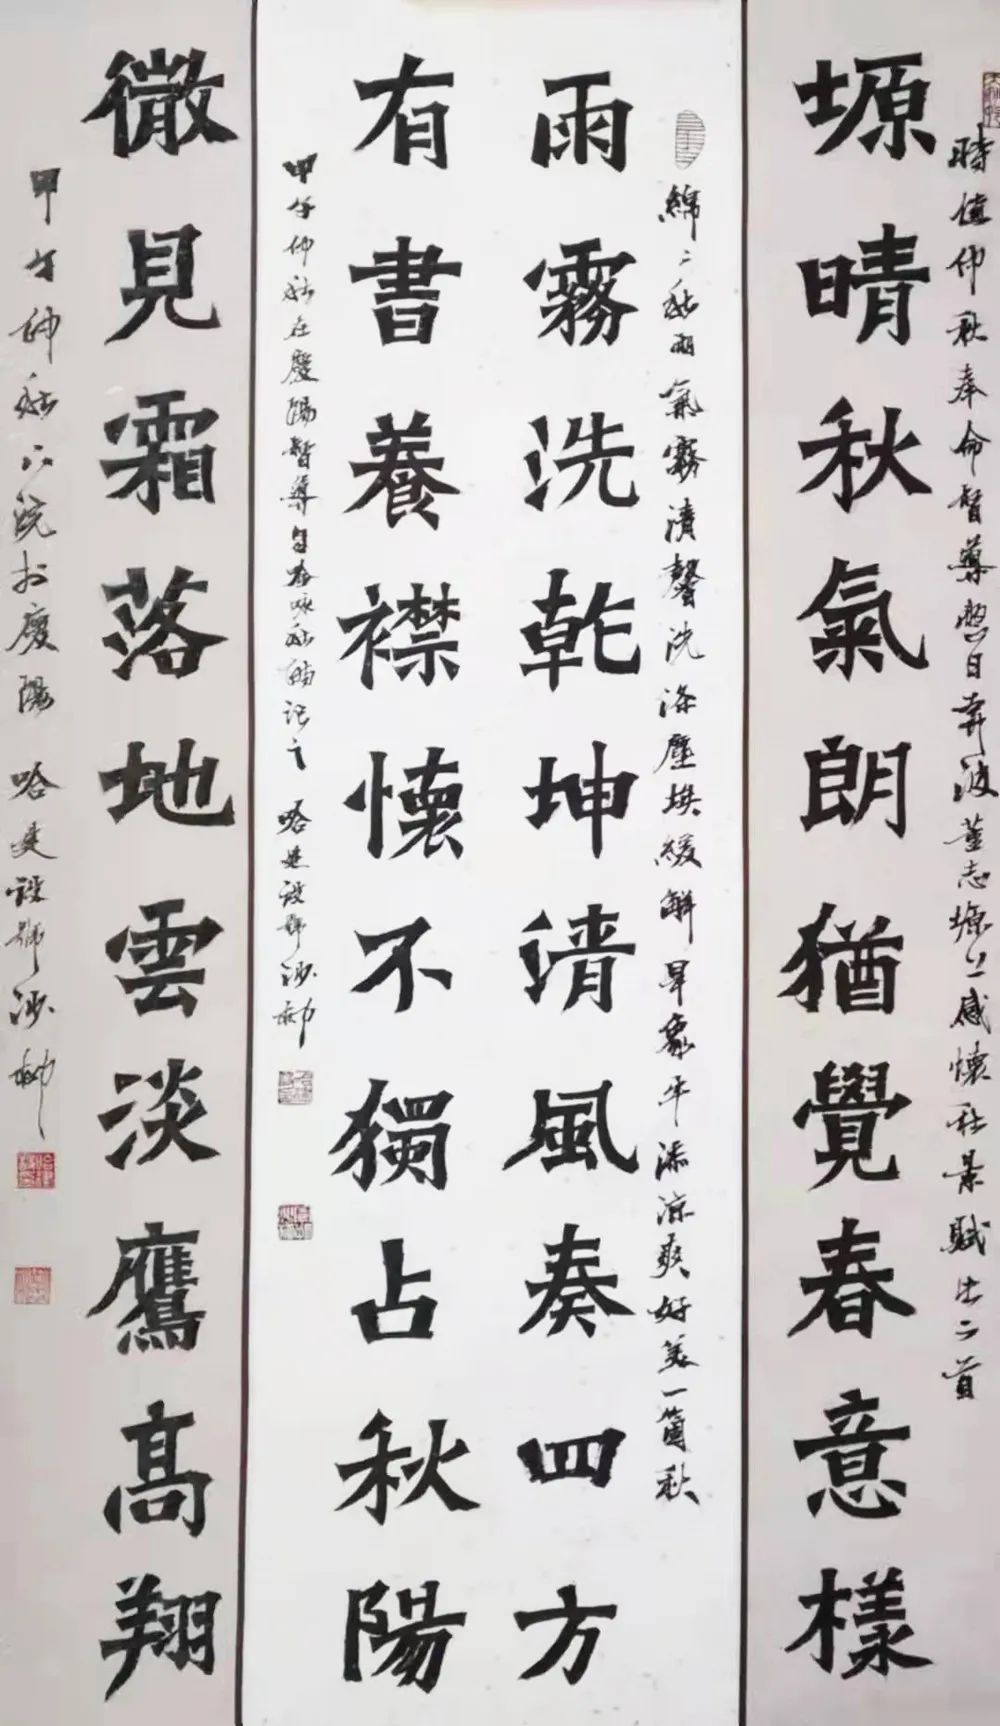 時值仲秋奉命督導整日奔波董志塬上感懷秋景賦此二首
塬晴秋氣朗猶覺春意樣
綿〻秋雨氣霧清馨洗滌塵埃緩解旱象平添涼爽好美一箇秋
雨霧洗乾坤清風奏四方
有書養襟懷不獨占秋陽
甲午仲秋在慶陽督導自咏秋記之 哈建設號沙柳
微見霜落地雲淡鷹高翔
甲午仲秋下浣於慶陽 哈建設號沙柳